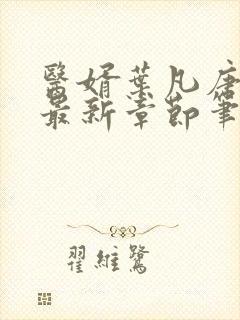 醫婿葉凡唐
最新章節筆
翟維鷺